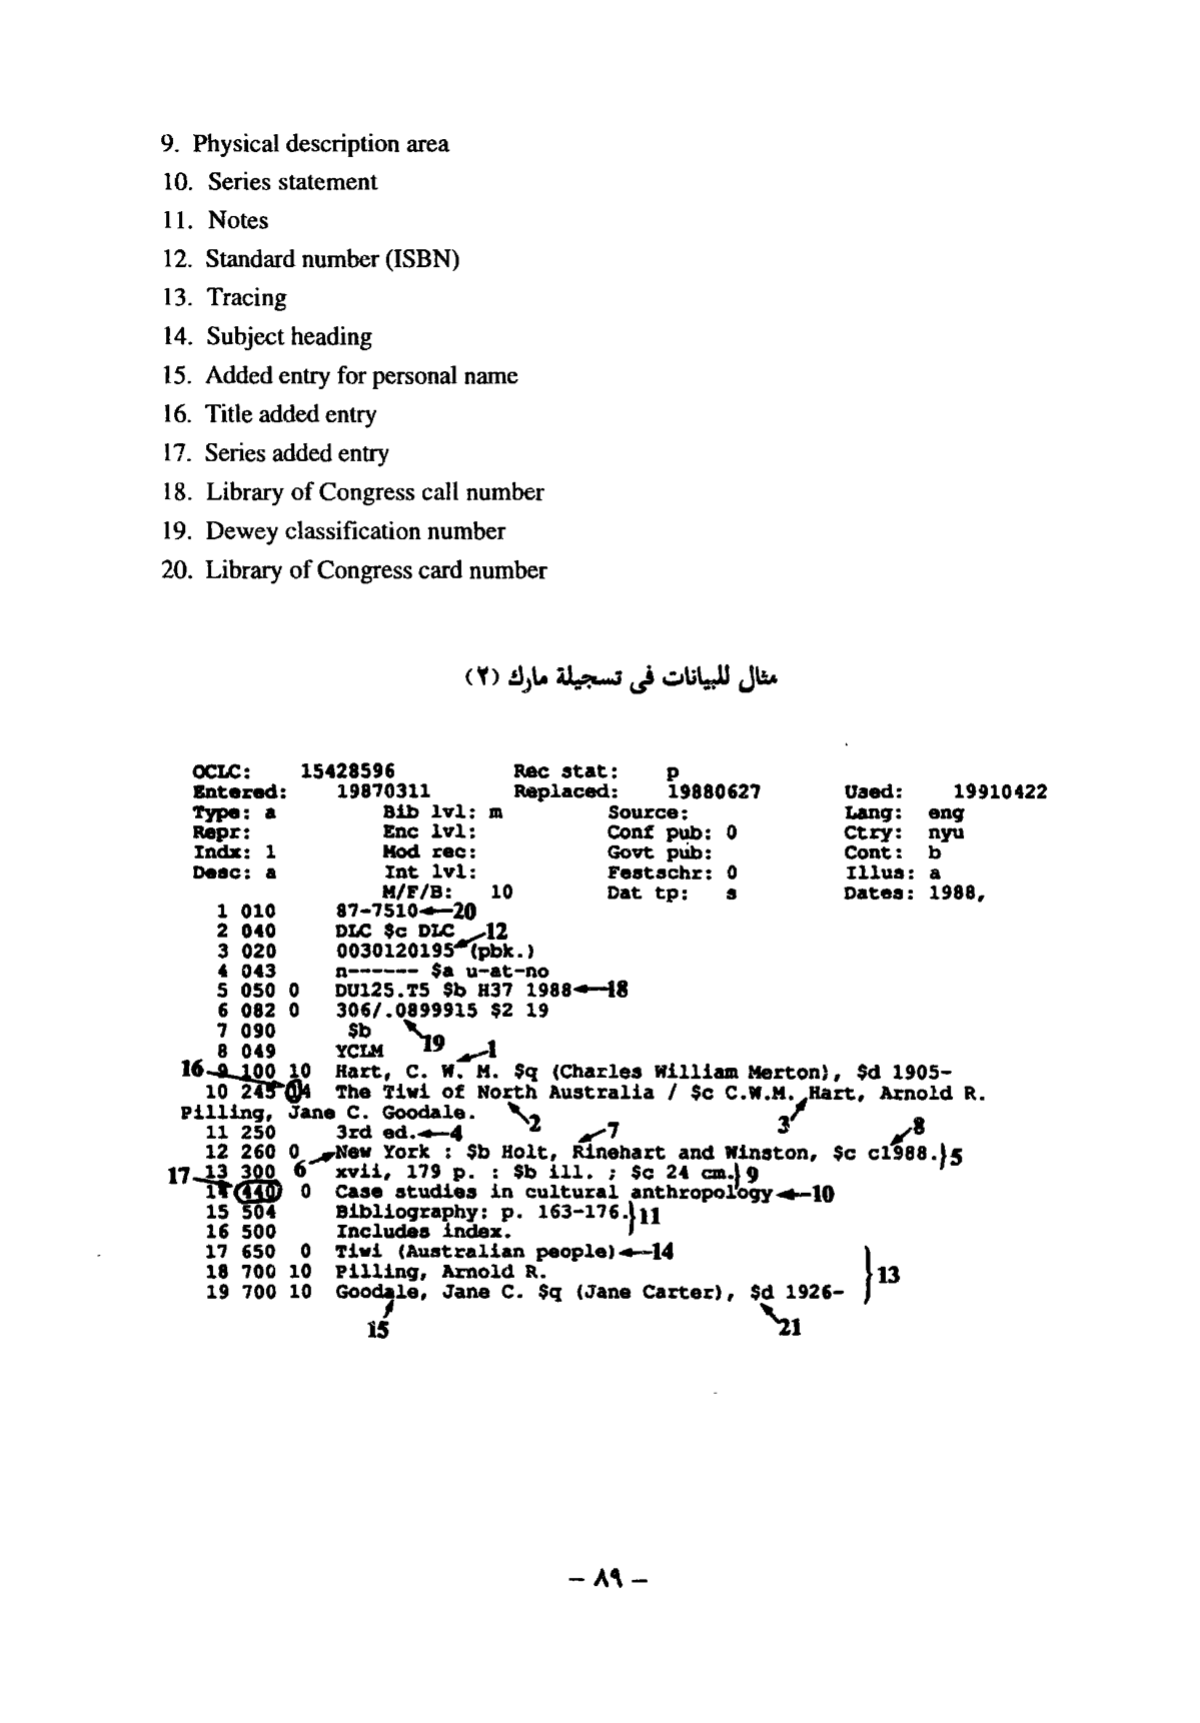 9. Physical description area
10. Series statement
11. Notes
12. Standard number (ISBN)
13. Tracing
14. Subject heading
15. Added entry for personal name
16. Title added entry
17. Series added entry
18. Library of Congress call number
19. Dewey classification number
20. Library of Congress card number
مثال للبيانات فى تسجيلة مارك (٢)
OCLC: 15428596 Rec stat: p
Entered: 19870311 Replaced: 19880627 Used: 19910422
Type: a Bib lvl: m Source: Lang: eng
Repr: Enc lvl: Conf pub: 0 Ctry: nyu
Indx: 1 Mod rec: Govt pub: Cont: b
Desc: a Int lvl: Festschr: 0 Illus: a
M/F/B: 10 Dat tp: s Dates: 1988,
1 010 87-7510 20
2 040 DLC $c DLC 12
3 020 0030120195 (pbk.)
4 043 n------ $a u-at-no
5 050 0 DU125.T5 $b H37 1988 18
6 082 0 306/.0899915 $2 19
7 090 $b
8 049 YCLM 19 1
16 9 100 10 Hart, C. W. M. $q (Charles William Merton), $d 1905-
10 245 04 The Tiwi of North Australia / $c C.W.M. Hart, Arnold R.
Pilling, Jane C. Goodale. 2 3
11 250 3rd ed. 4 7 8
12 260 0 New York : $b Holt, Rinehart and Winston, $c c1988.}5
17 13 300 6 xvii, 179 p. : $b ill. ; $c 24 cm.}9
14 440 0 Case studies in cultural anthropology 10
15 504 Bibliography: p. 163-176.}11
16 500 Includes index.
17 650 0 Tiwi (Australian people) 14
18 700 10 Pilling, Arnold R. }13
19 700 10 Goodale, Jane C. $q (Jane Carter), $d 1926-
15 21
– ٨٩ –